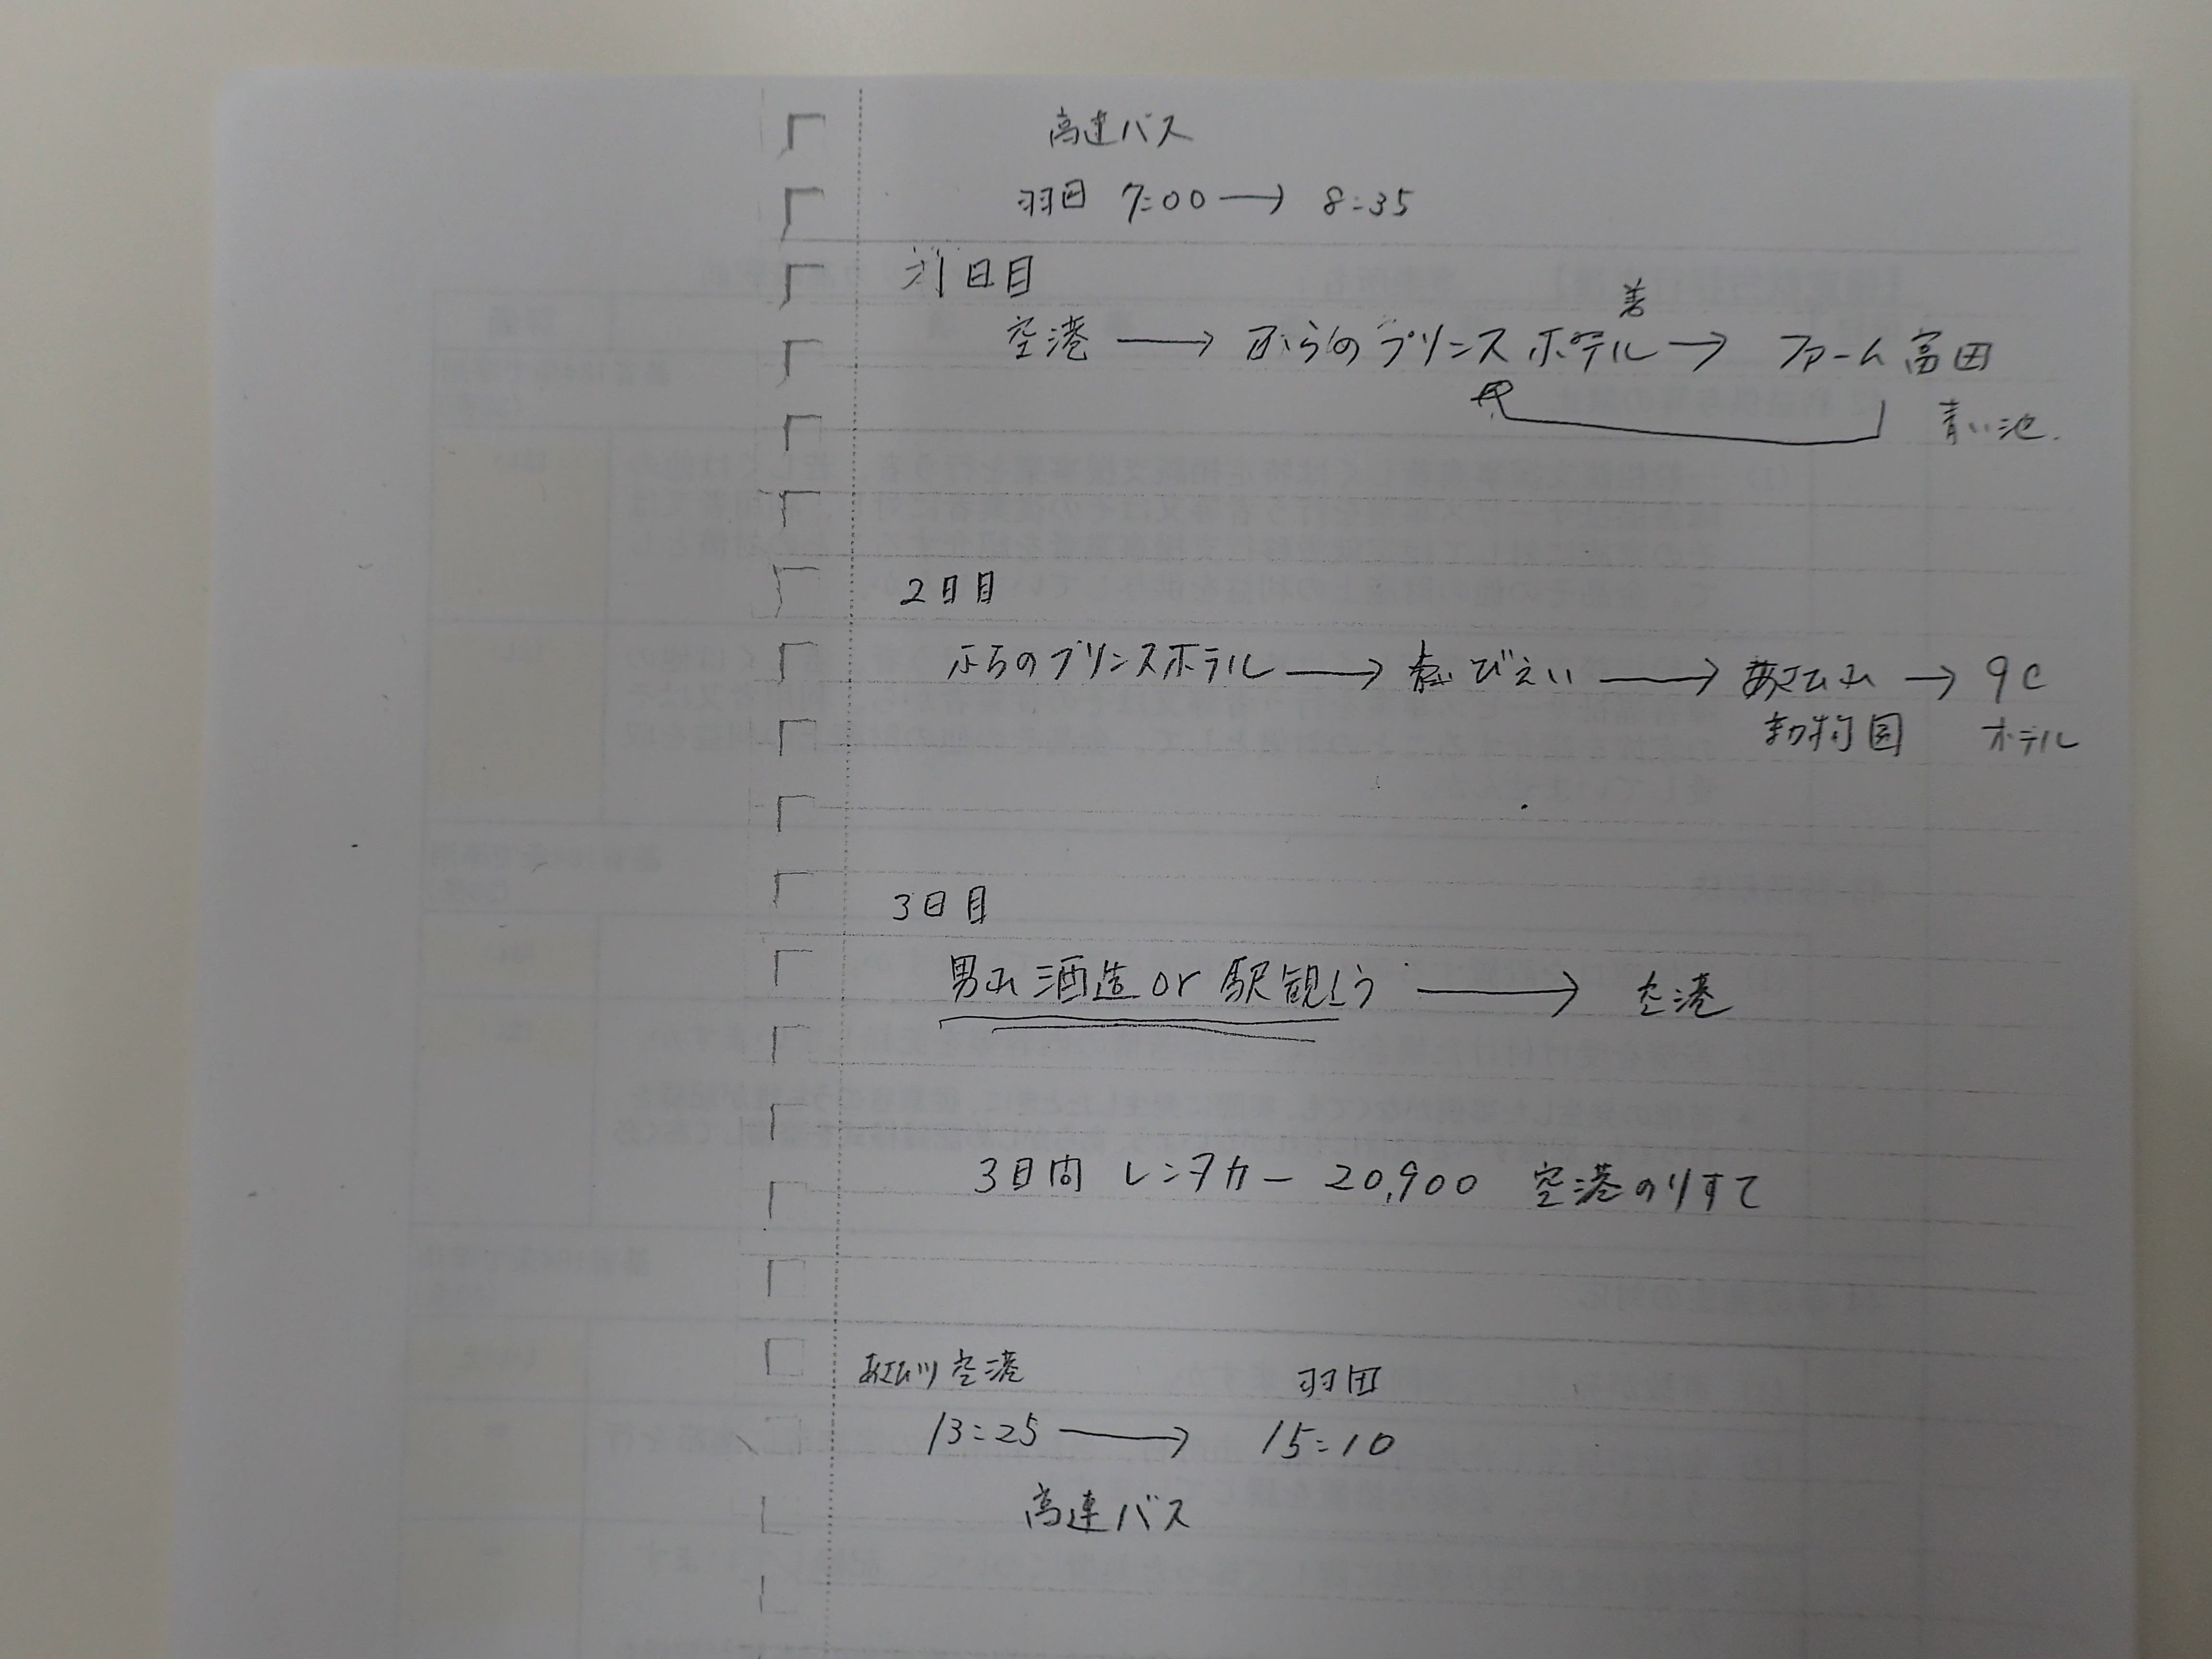 高速バス
羽田 7:00 → 8:35
1日目
着
空港 → ふらのプリンスホテル → ファーム富田
青い池.
2日目
ふらのプリンスホテル → びえい → あさひ山 → 9C
動物園 ホテル
3日目
男山酒造 or 駅観 → 空港
3日間 レンタカー 20,900 空港のりすて
あさひ川空港 羽田
13:25 → 15:10
高速バス